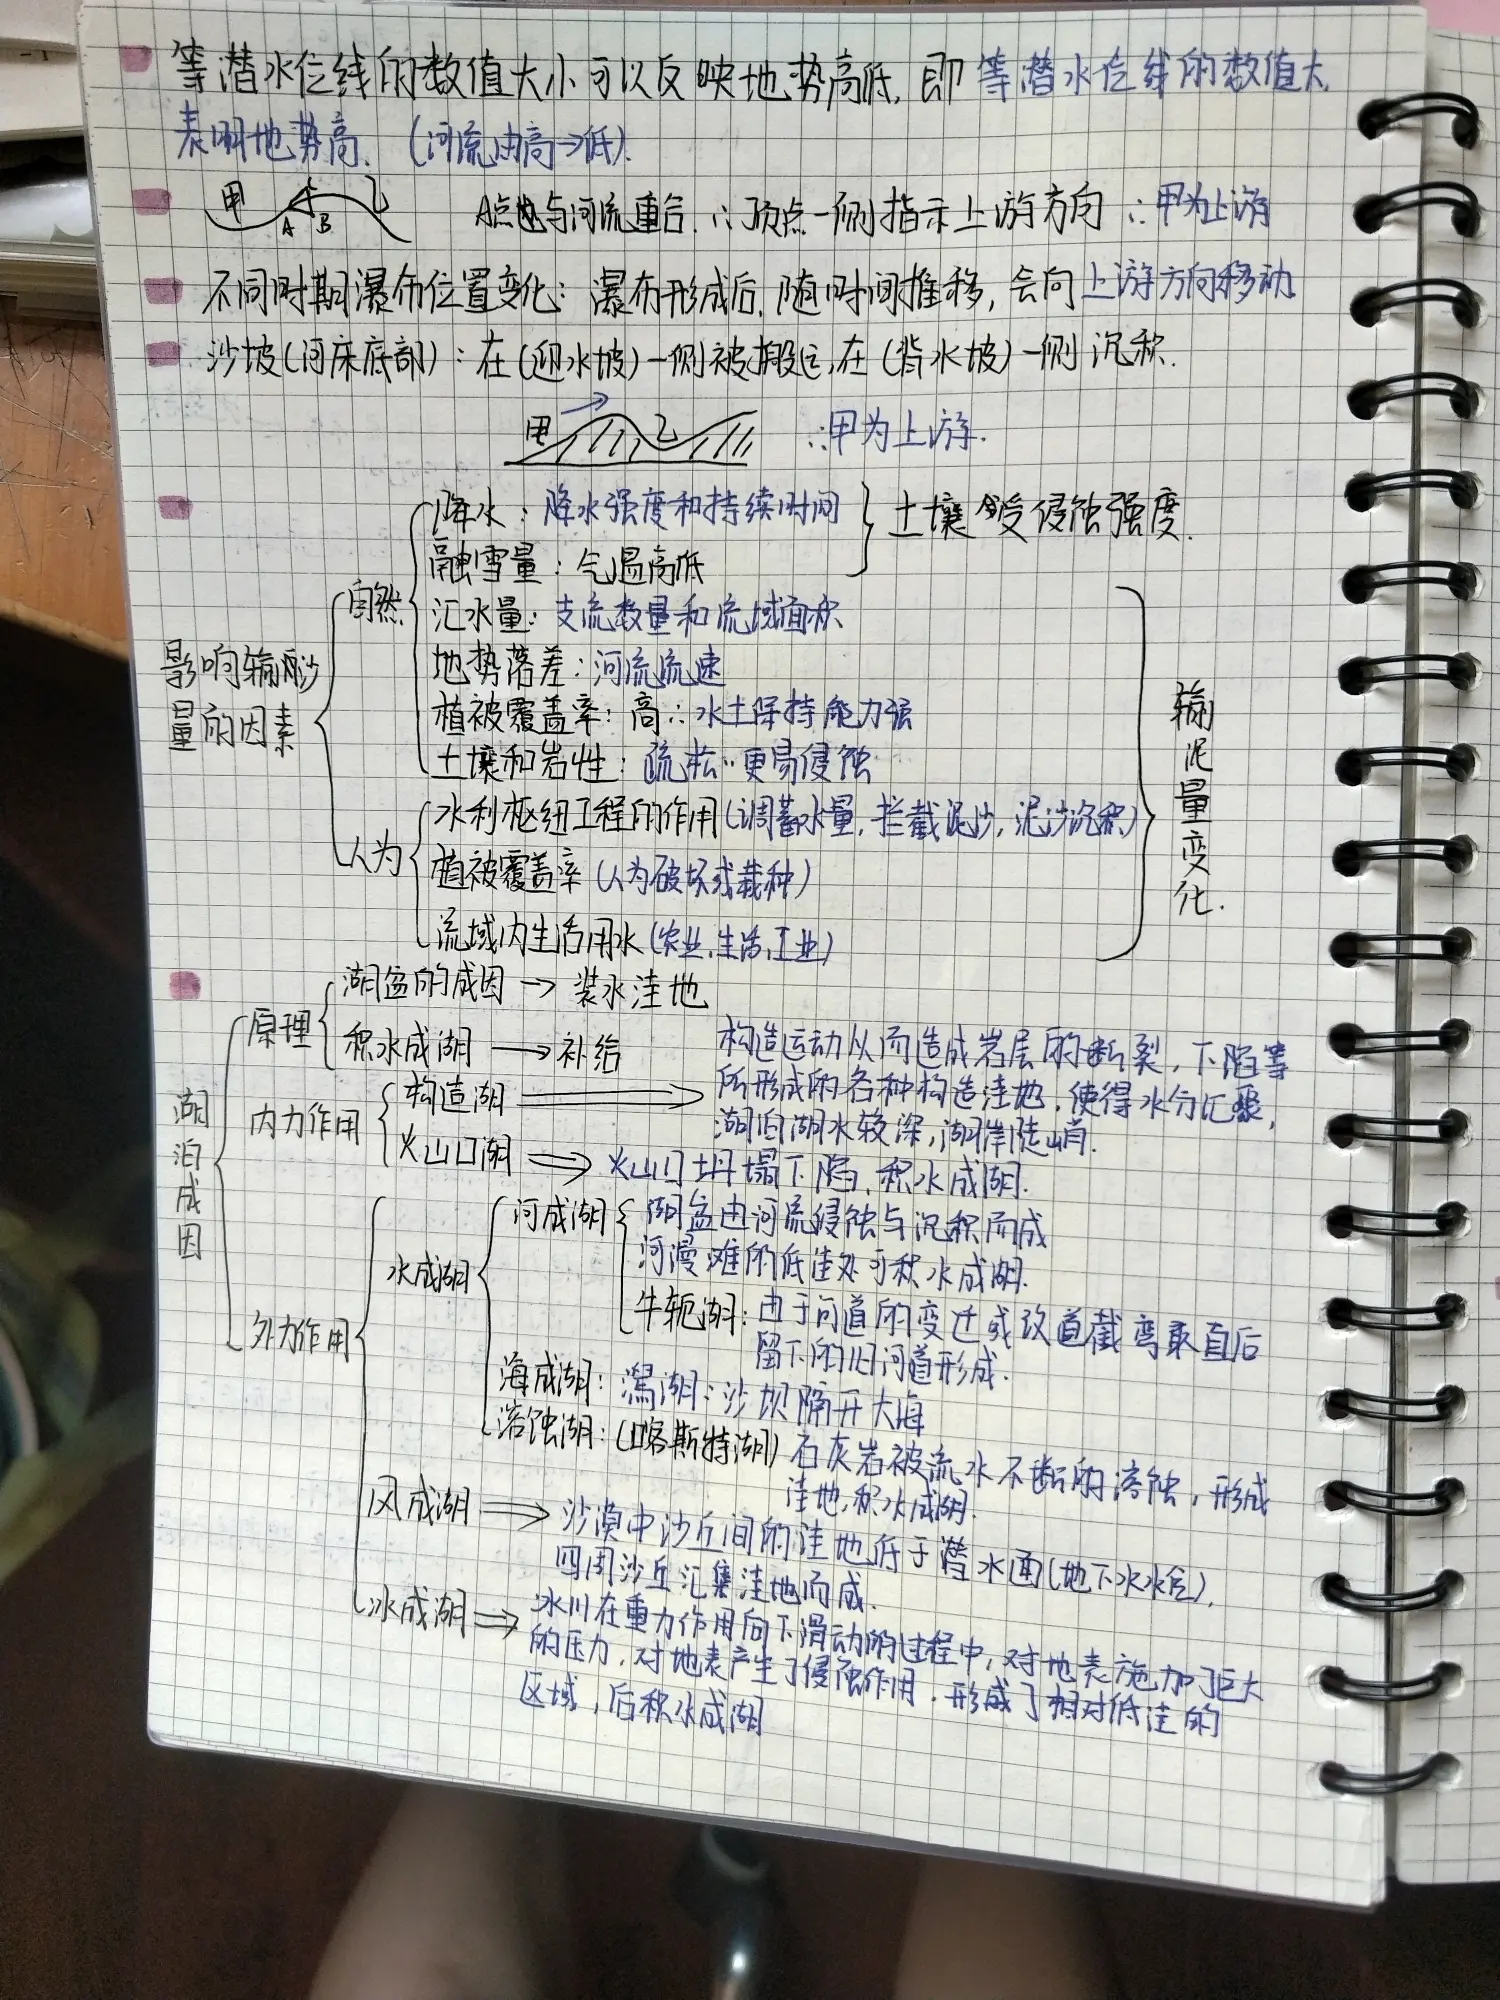 等潜水位线的数值大小可以反映地势高低,即等潜水位线的数值大,
表明地势高.(河流由高→低).
甲 A B A点与河流重合.∴顶点一侧指示上游方向∴甲为上游
不同时期瀑布位置变化:瀑布形成后,随时间推移,会向上游方向移动
沙坡(河床底部):在(迎水坡)一侧被搬运,在(背水坡)一侧沉积.
甲 乙 ∴甲为上游.
影响输沙量的因素
自然
降水:降水强度和持续时间
融雪量:气温高低
土壤受侵蚀强度.
汇水量:支流数量和流域面积
地势落差:河流流速
植被覆盖率:高∴水土保持能力强
土壤和岩性:疏松∵更易侵蚀
人为
水利枢纽工程的作用(调蓄水量,拦截泥沙,泥沙沉积)
植被覆盖率(人为破坏或栽种)
流域内生活用水(农业,生活,工业)
输泥量变化.
湖泊成因
原理
湖盆的成因→装水洼地
积水成湖→补给
内力作用
构造湖⇒构造运动从而造成岩层的断裂,下陷等
所形成的各种构造洼地,使得水分汇聚,
湖泊湖水较深,湖岸陡峭.
火山口湖⇒火山口坍塌下陷,积水成湖.
外力作用
水成湖
河成湖
湖盆由河流侵蚀与沉积而成
河漫滩的低洼处可积水成湖.
牛轭湖:由于河道的变迁或改道截弯取直后
留下的旧河道形成.
海成湖:潟湖:沙坝隔开大海
溶蚀湖:(喀斯特湖)石灰岩被流水不断的溶蚀,形成
洼地,积水成湖.
风成湖⇒沙漠中沙丘间的洼地低于潜水面(地下水水位),
四周沙丘汇集洼地而成.
冰成湖⇒冰川在重力作用向下滑动的过程中,对地表施加了巨大
的压力,对地表产生了侵蚀作用,形成了相对低洼的
区域,后积水成湖